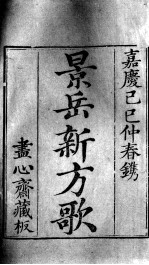 嘉慶己巳仲春鐫
景岳新方歌
盡心齋藏板